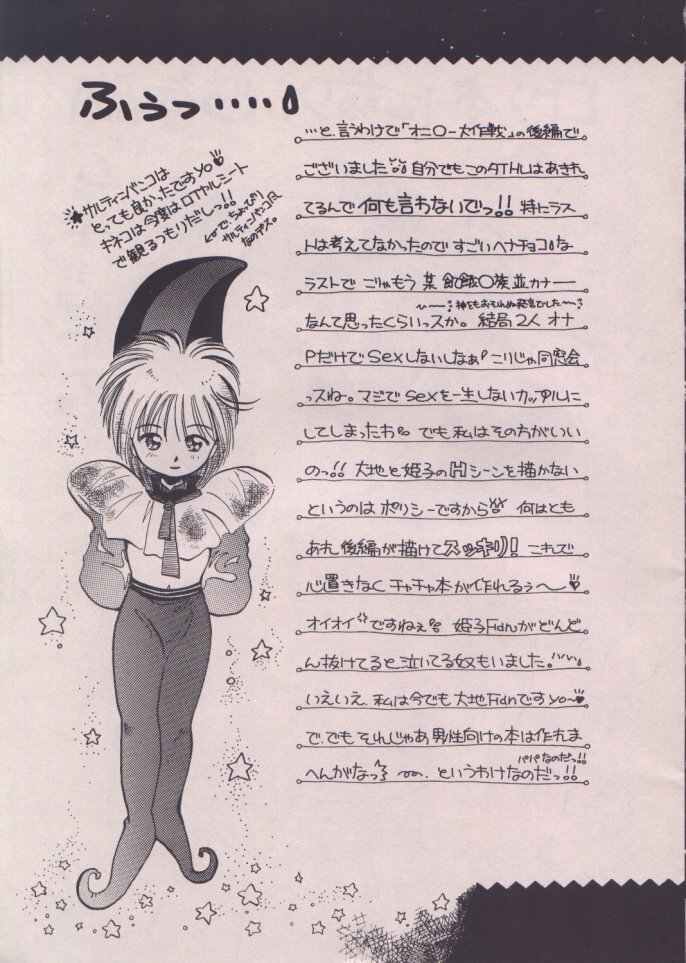 ふぅっ・・・・
サルティンバンコは
とっても良かったですyo♥
キネコは今度はロイヤルシート
で観るつもりだしっ!!
で、ちょっぴり
サルティンバンコ風
なのデス。
…と、言うわけで「オニ○ー大作戦」の後編で
ございました 自分でもこのTTHLはあきれ
てるんで 何も言わないでっ!! 特にラス
トは考えてなかったので すごいヘナチョコな
ラストで ごりゃもう 某 飢餓○族並カナー
〜?神をもおそれぬ発言でした〜?
なんて思ったくらいっスか。 結局2人 オナ
PだけでSexしないしなぁ こりじゃ同窓会
っスね。マジでsexを一生しないカップルに
してしまったわ でも私はその方がいい
のっ!! 大地と姫子のHシーンを描かない
というのは ポリシーですから 何はとも
あれ 後編が描けてスッキリ! これで
心置きなく チャチャ本が作れるぅ〜♥
オイオイ ですねぇ 姫子Fanがどんど
ん抜けてると泣いてる奴もいました。
いえいえ、私は今でも 大地Fanですyo〜♥
で、でも それじゃあ 男性向けの本は作れま
パパなのだっ!!
へんがなっ というわけなのだっ!!